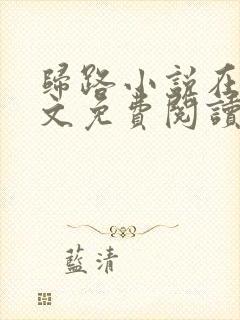 歸路小說在
文免費閱讀
藍清